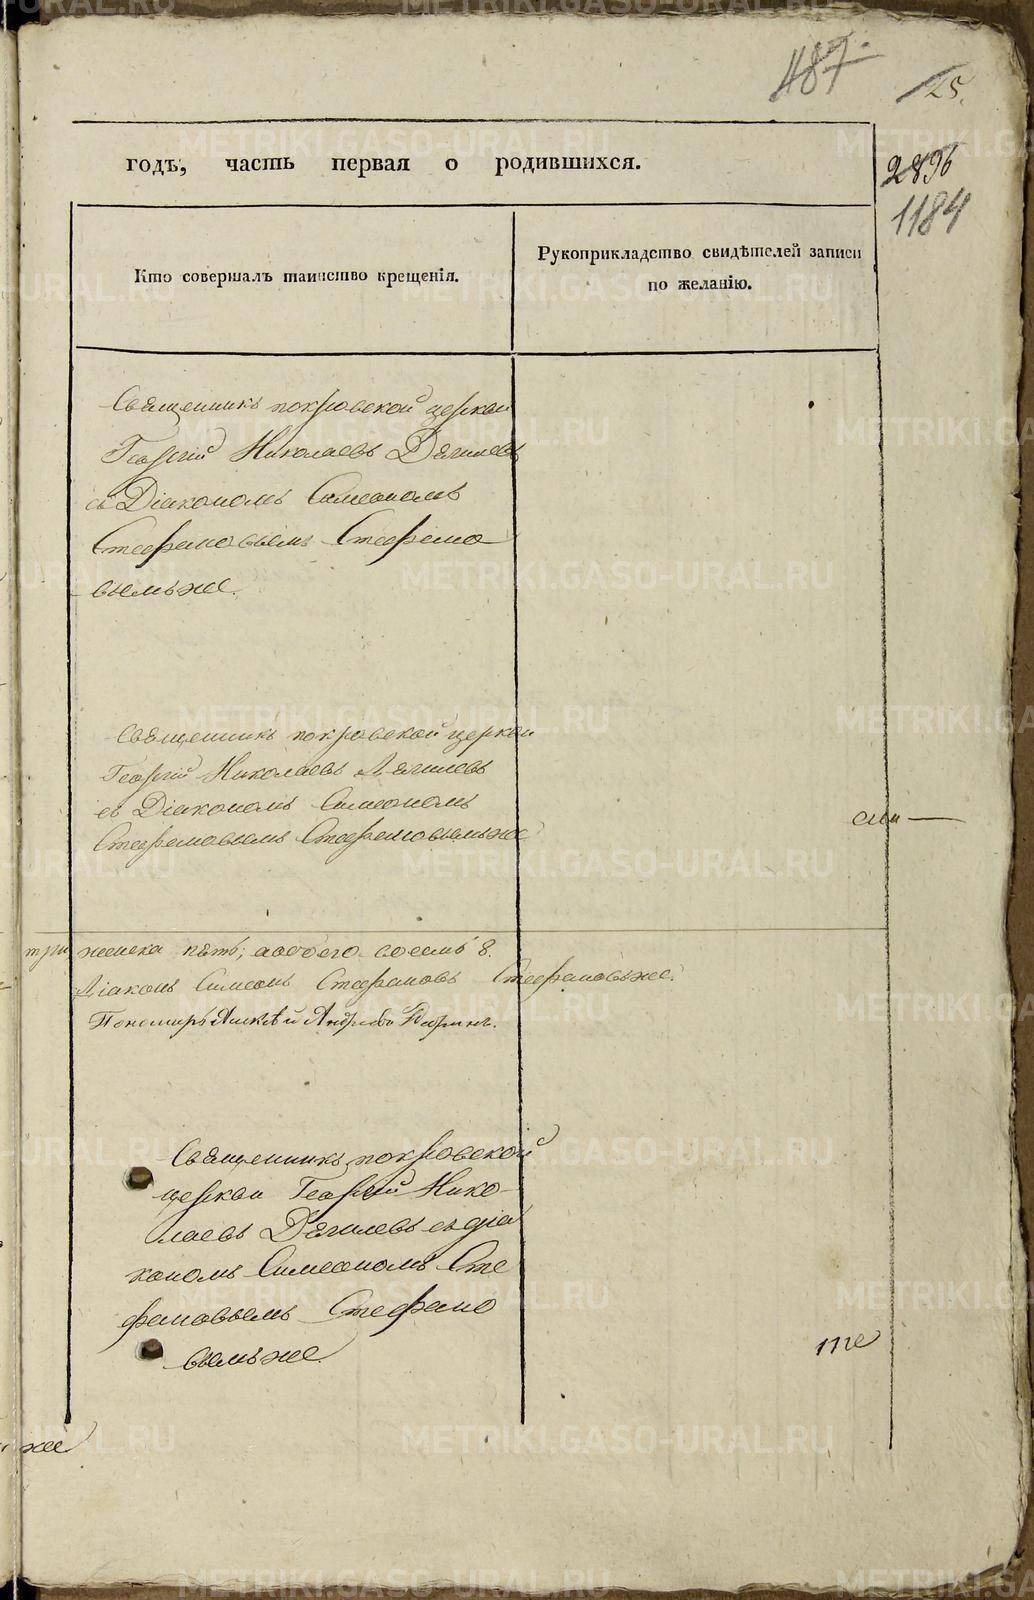 487
25.
годъ, часть первая о родившихся.
2896
1184
Кто совершалъ таинство крещенія.
Рукоприкладство свидѣтелей записи
по желанію.
Священникъ покровской церкви
Георгій Николаевъ Дягилевъ
съ Діакономъ Симеономъ
Стефановымъ Стефано
вымъ же.
Священникъ покровской церкви
Георгій Николаевъ Дягилевъ
съ Діакономъ Симеономъ
Стефановымъ Стефановымъ же
женска пять; а обоего восемь 8.
Діаконъ Симеонъ Стефановъ Стефановъ же.
Пономарь Алексѣй Андреевъ
Священникъ покровской
церкви Георгій Нико
лаевъ Дягилевъ съ діа
кономъ Симеономъ Сте
фановымъ Стефано
вымъ же
те
же
METRIKI.GASO-URAL.RU